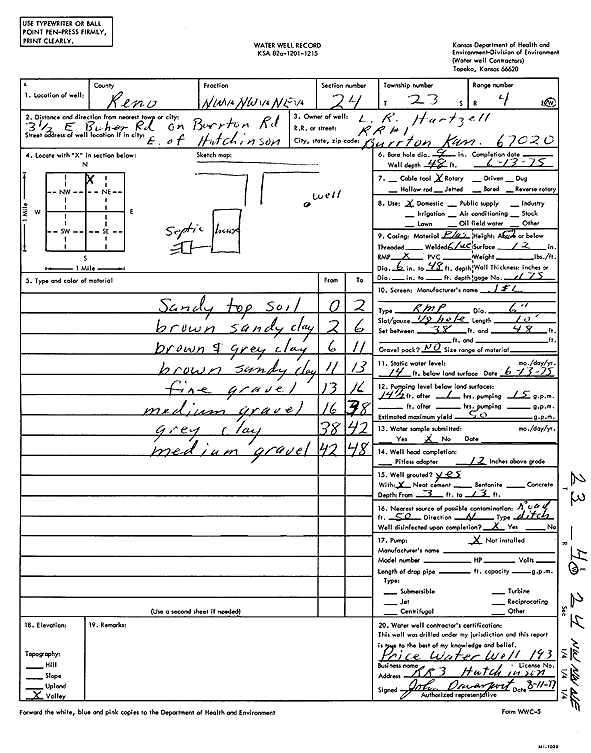 USE TYPEWRITER OR BALL
POINT PEN-PRESS FIRMLY,
PRINT CLEARLY.
WATER WELL RECORD
KSA 82a-1201-1215
Kansas Department of Health and
Environment-Division of Environment
(Water well Contractors)
Topeka, Kansas 66620
1. Location of well: County Reno Fraction NW¼ NW¼ NE¼ Section number 24 Township number T 23 S Range number R 4 E/W
2. Distance and direction from nearest town or city: 3½ E Buhler Rd on Burrton Rd
Street address of well location if in city: E. of Hutchinson
3. Owner of well: L. R. Hartzell
R.R. or street: RR#1
City, state, zip code: Burrton Kan. 67020
4. Locate with "X" in section below:
N
X
NW NE
W E
SW SE
S
1 Mile
1 Mile
Sketch map:
well
Septic
house
6. Bore hole dia. 9 in. Completion date
Well depth 48 ft. 6-13-75
7. Cable tool X Rotary Driven Dug
Hollow rod Jetted Bored Reverse rotary
8. Use: X Domestic Public supply Industry
Irrigation Air conditioning Stock
Lawn Oil field water Other
9. Casing: Material Plas Height: Above or below
Threaded Welded Glue Surface 12 in.
RMP X PVC Weight lbs./ft.
Dia. 6 in. to 48 ft. depth Wall Thickness: inches or
Dia. in. to ft. depth gage No. .175
5. Type and color of material From To
Sandy top soil 0 2
brown sandy clay 2 6
brown & grey clay 6 11
brown sandy clay 11 13
fine gravel 13 16
medium gravel 16 38
grey clay 38 42
medium gravel 42 48
(Use a second sheet if needed)
10. Screen: Manufacturer's name
Type RMP Dia. 6"
Slot/gauze hole Length 10'
Set between 38 ft. and 48 ft.
ft. and ft.
Gravel pack? NO Size range of material
11. Static water level: mo./day/yr.
14 ft. below land surface Date 6-13-75
12. Pumping level below land surfaces:
14½ ft. after 1 hrs. pumping 15 g.p.m.
ft. after hrs. pumping g.p.m.
Estimated maximum yield 50 g.p.m.
13. Water sample submitted: mo./day/yr.
Yes X No Date
14. Well head completion:
Pitless adapter 12 Inches above grade
15. Well grouted? yes
With: X Neat cement Bentonite Concrete
Depth: From 3 ft. to 13 ft.
16. Nearest source of possible contamination: Road
ft. 50 Direction N Type ditch
Well disinfected upon completion? X Yes No
17. Pump: X Not installed
Manufacturer's name
Model number HP Volts
Length of drop pipe ft. capacity g.p.m.
Type:
Submersible Turbine
Jet Reciprocating
Centrifugal Other
18. Elevation:
Topography:
Hill
Slope
Upland
X Valley
19. Remarks:
20. Water well contractor's certification:
This well was drilled under my jurisdiction and this report
is true to the best of my knowledge and belief.
Price Water Well 193
Business name License No.
Address RR3 Hutchinson
Signed John Davenport Date 8-11-77
Authorized representative
Forward the white, blue and pink copies to the Department of Health and Environment
Form WWC-5
T 23 R 4 E/W Sec 24 NW ¼ NW ¼ NE ¼